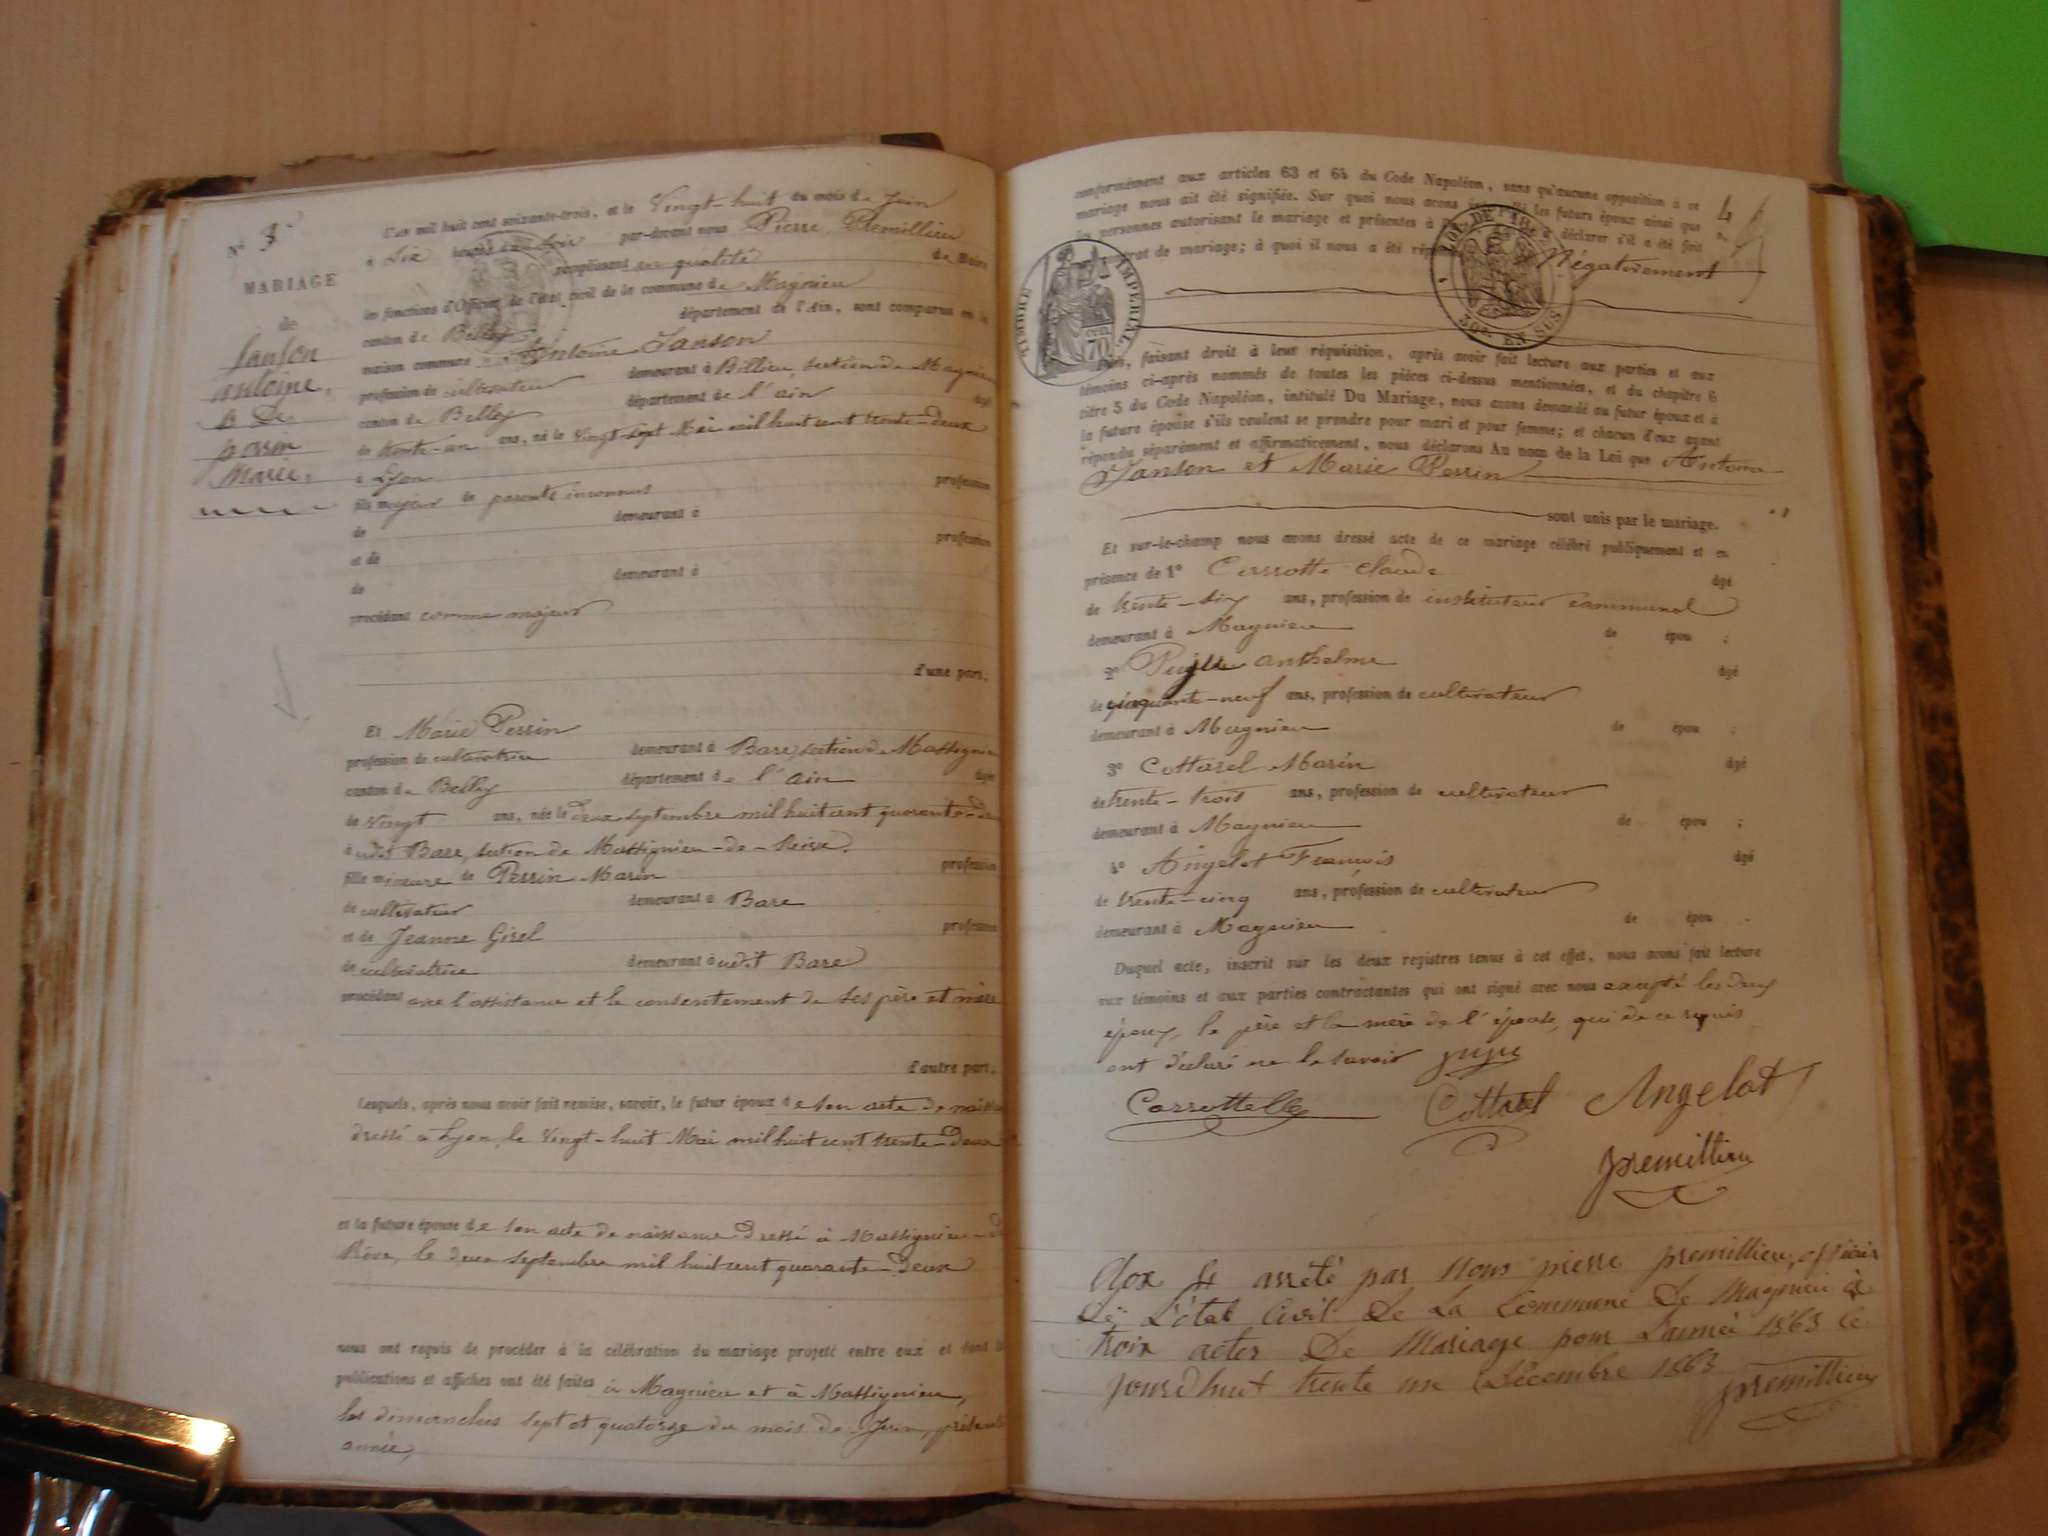 N° 3
MARIAGE
de
Janson
antoine,
& De
perrin
Marie.
L'an mil huit cent soixante-trois, et le Vingt-huit du mois de Juin
à Six heures du Soir par-devant nous Pierre Premillieu
remplissant en qualité de Maire
les fonctions d'Officier de l'état civil de la commune de Magnieu
canton de Belley département de l'Ain, sont comparus en la
maison commune Antoine Janson
profession de cultivateur demeurant à Billieu, section de Magnieu
canton de Belley département de l'ain âgé
de trente-un ans, né le Vingt-sept Mai mil huit cent trente-deux
à Lyon
fils majeur de parents inconnus profession
de demeurant à
et de profession
de demeurant à
procédant comme majeur
d'une part;
Et Marie Perrin
profession de cultivatrice demeurant à Bare, section de Massignieu
canton de Belley département de l'ain âgée
de vingt ans, née le deux septembre mil huit cent quarante-deux
à udit Bare, section de Massignieu-de-Rives.
fille mineure de Perrin Marin profession
de cultivateur demeurant à Bare
et de Jeanne Girel profession
de cultivatrice demeurant à udit Bare
procédant avec l'assistance et le consentement de ses père et mère
d'autre part;
Lesquels, après nous avoir fait remise, savoir, le futur époux de son acte de naissance
dressé à Lyon, le Vingt-huit Mai mil huit cent trente-deux
et la future épouse de son acte de naissance dressé à Massignieu-de
Rive, le deux septembre mil huit cent quarante-deux
nous ont requis de procéder à la célébration du mariage projeté entre eux et dont les
publications et affiches ont été faites à Magnieu et à Massignieu,
les dimanches sept et quatorze du mois de Juin, présente
année,
conformément aux articles 63 et 64 du Code Napoléon, sans qu'aucune opposition à ce
mariage nous ait été signifiée. Sur quoi nous avons les futurs époux ainsi que
les personnes autorisant le mariage et présentes à déclarer s'il a été fait
contrat de mariage; à quoi il nous a été rép Négativement
4
TIMBRE IMPERIAL
70
LOI DE
30E EN SUS
Puis, faisant droit à leur réquisition, après avoir fait lecture aux parties et aux
témoins ci-après nommés de toutes les pièces ci-dessus mentionnées, et du chapitre 6
titre 5 du Code Napoléon, intitulé Du Mariage, nous avons demandé au futur époux et à
la future épouse s'ils veulent se prendre pour mari et pour femme; et chacun d'eux ayant
répondu séparément et affirmativement, nous déclarons Au nom de la Loi que Antoine
Janson et Marie Perrin
sont unis par le mariage.
Et sur-le-champ nous avons dressé acte de ce mariage célébré publiquement et en
présence de 1° Carrotte Claude âgé
de trente-six ans, profession de instituteur communal
demeurant à Magnieu de épou ;
2° anthelme âgé
de cinquante-neuf ans, profession de cultivateur
demeurant à Magnieu de épou ;
3° Cottarel Marin âgé
de trente-trois ans, profession de cultivateur
demeurant à Magnieu de épou ;
4° Angelot François âgé
de trente-cinq ans, profession de cultivateur
demeurant à Magnieu de épou .
Duquel acte, inscrit sur les deux registres tenus à cet effet, nous avons fait lecture
aux témoins et aux parties contractantes qui ont signé avec nous excepté les deux
époux, le père et la mère de l'épouse, qui de ce requis
ont déclaré ne le savoir
Cottarel Angelot
premillieu
Clox & arrêté par Nous pierre premillieu, officier
De L'état Civil De La Commune De Magnieu à
troix actes De Mariage pour L'année 1863 Ce
jourd'huit trente un Décembre 1863
premillieu